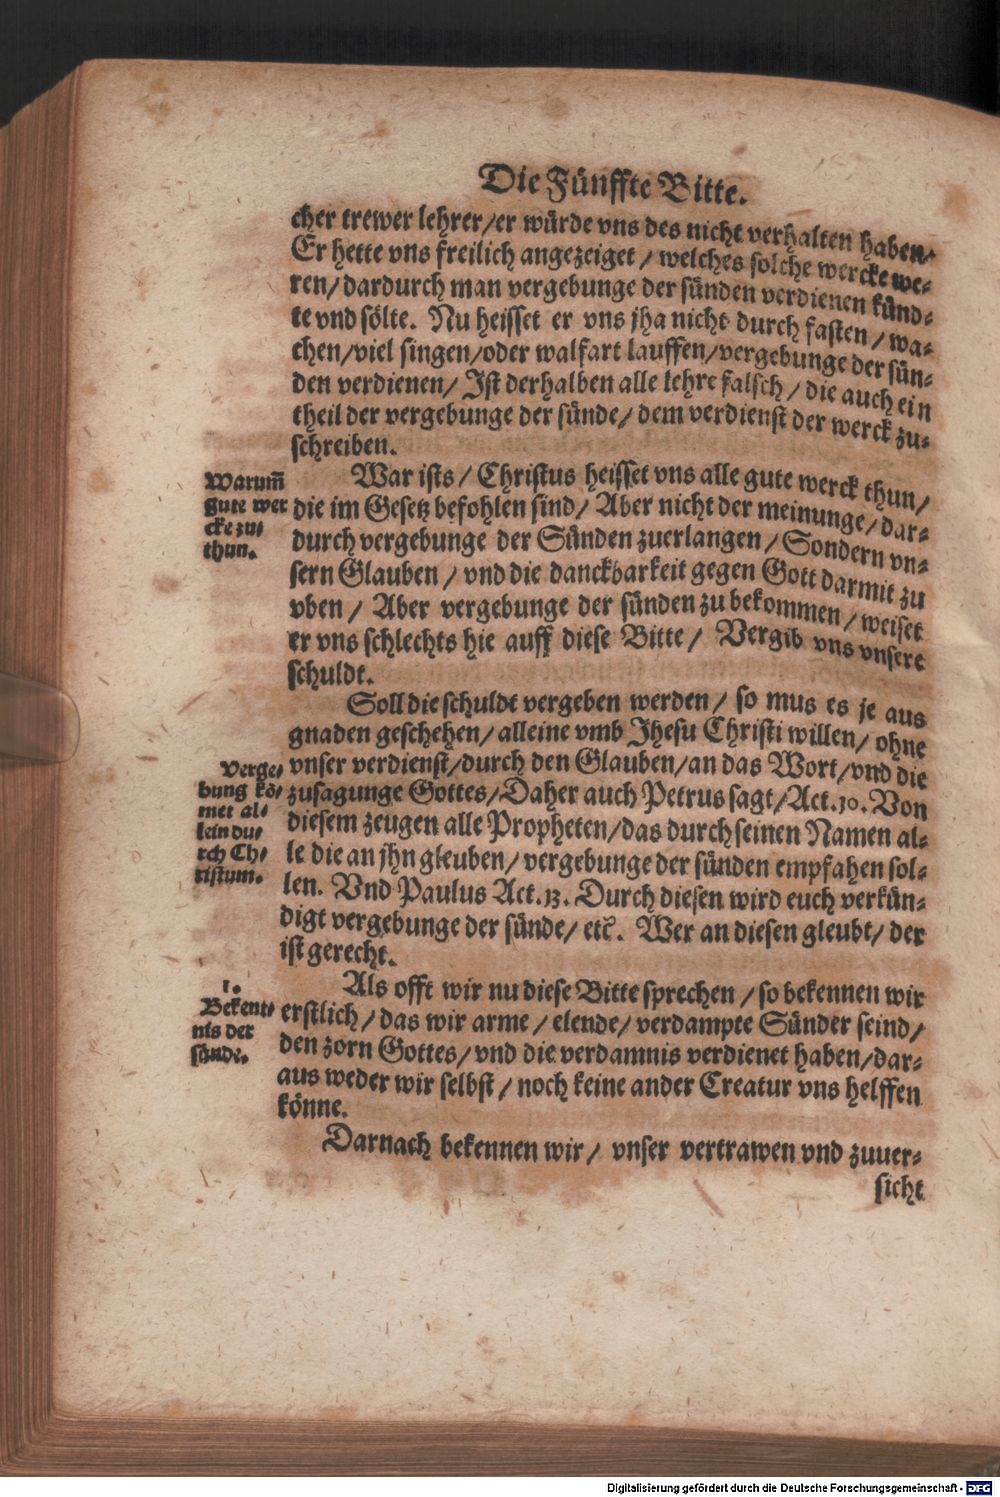 Die Fünffte Bitte.
cher trewer lehrer/er würde vns des nicht verhalten haben.
Er hette vns freilich angezeiget / welches solche wercke we-
ren/dardurch man vergebunge der sünden verdienen künd-
te vnd sölte. Nu heisset er vns jha nicht durch fasten / wa-
chen/viel singen/oder walfart lauffen/vergebunge der sün-
den verdienen/ Ist derhalben alle lehre falsch / die auch ein
theil der vergebunge der sünde/ dem verdienst der werck zu-
schreiben.
Warum̃
gute wer
cke zu-
thun.
War ists / Christus heisset vns alle gute werck thun/
die im Gesetz befohlen sind/ Aber nicht der meinunge/ dar-
durch vergebunge der Sünden zuerlangen / Sondern vn-
sern Glauben / vnd die danckbarkeit gegen Gott darmit zu
vben / Aber vergebunge der sünden zu bekommen / weiset
er vns schlechts hie auff diese Bitte / Vergib vns vnsere
schuldt.
Verge-
bung kö-
met al-
lein du-
rch Ch-
ristum.
Soll die schuldt vergeben werden / so mus es je aus
gnaden geschehen/ alleine vmb Jhesu Christi willen/ ohne
vnser verdienst/durch den Glauben/an das Wort/vnd die
zusagunge Gottes/Daher auch Petrus sagt/Act.10. Von
diesem zeugen alle Propheten/das durch seinen Namen al-
le die an jhn gleuben/ vergebunge der sünden empfahen sol-
len. Vnd Paulus Act.13. Durch diesen wird euch verkün-
digt vergebunge der sünde/ etc. Wer an diesen gleubt/ der
ist gerecht.
1.
Bekent-
nis der
sünde.
Als offt wir nu diese Bitte sprechen / so bekennen wir
erstlich / das wir arme / elende/ verdampte Sünder seind/
den zorn Gottes/ vnd die verdamnis verdienet haben/dar-
aus weder wir selbst / noch keine ander Creatur vns helffen
könne.
Darnach bekennen wir / vnser vertrawen vnd zuuer-
sicht
Digitalisierung gefördert durch die Deutsche Forschungsgemeinschaft - DFG